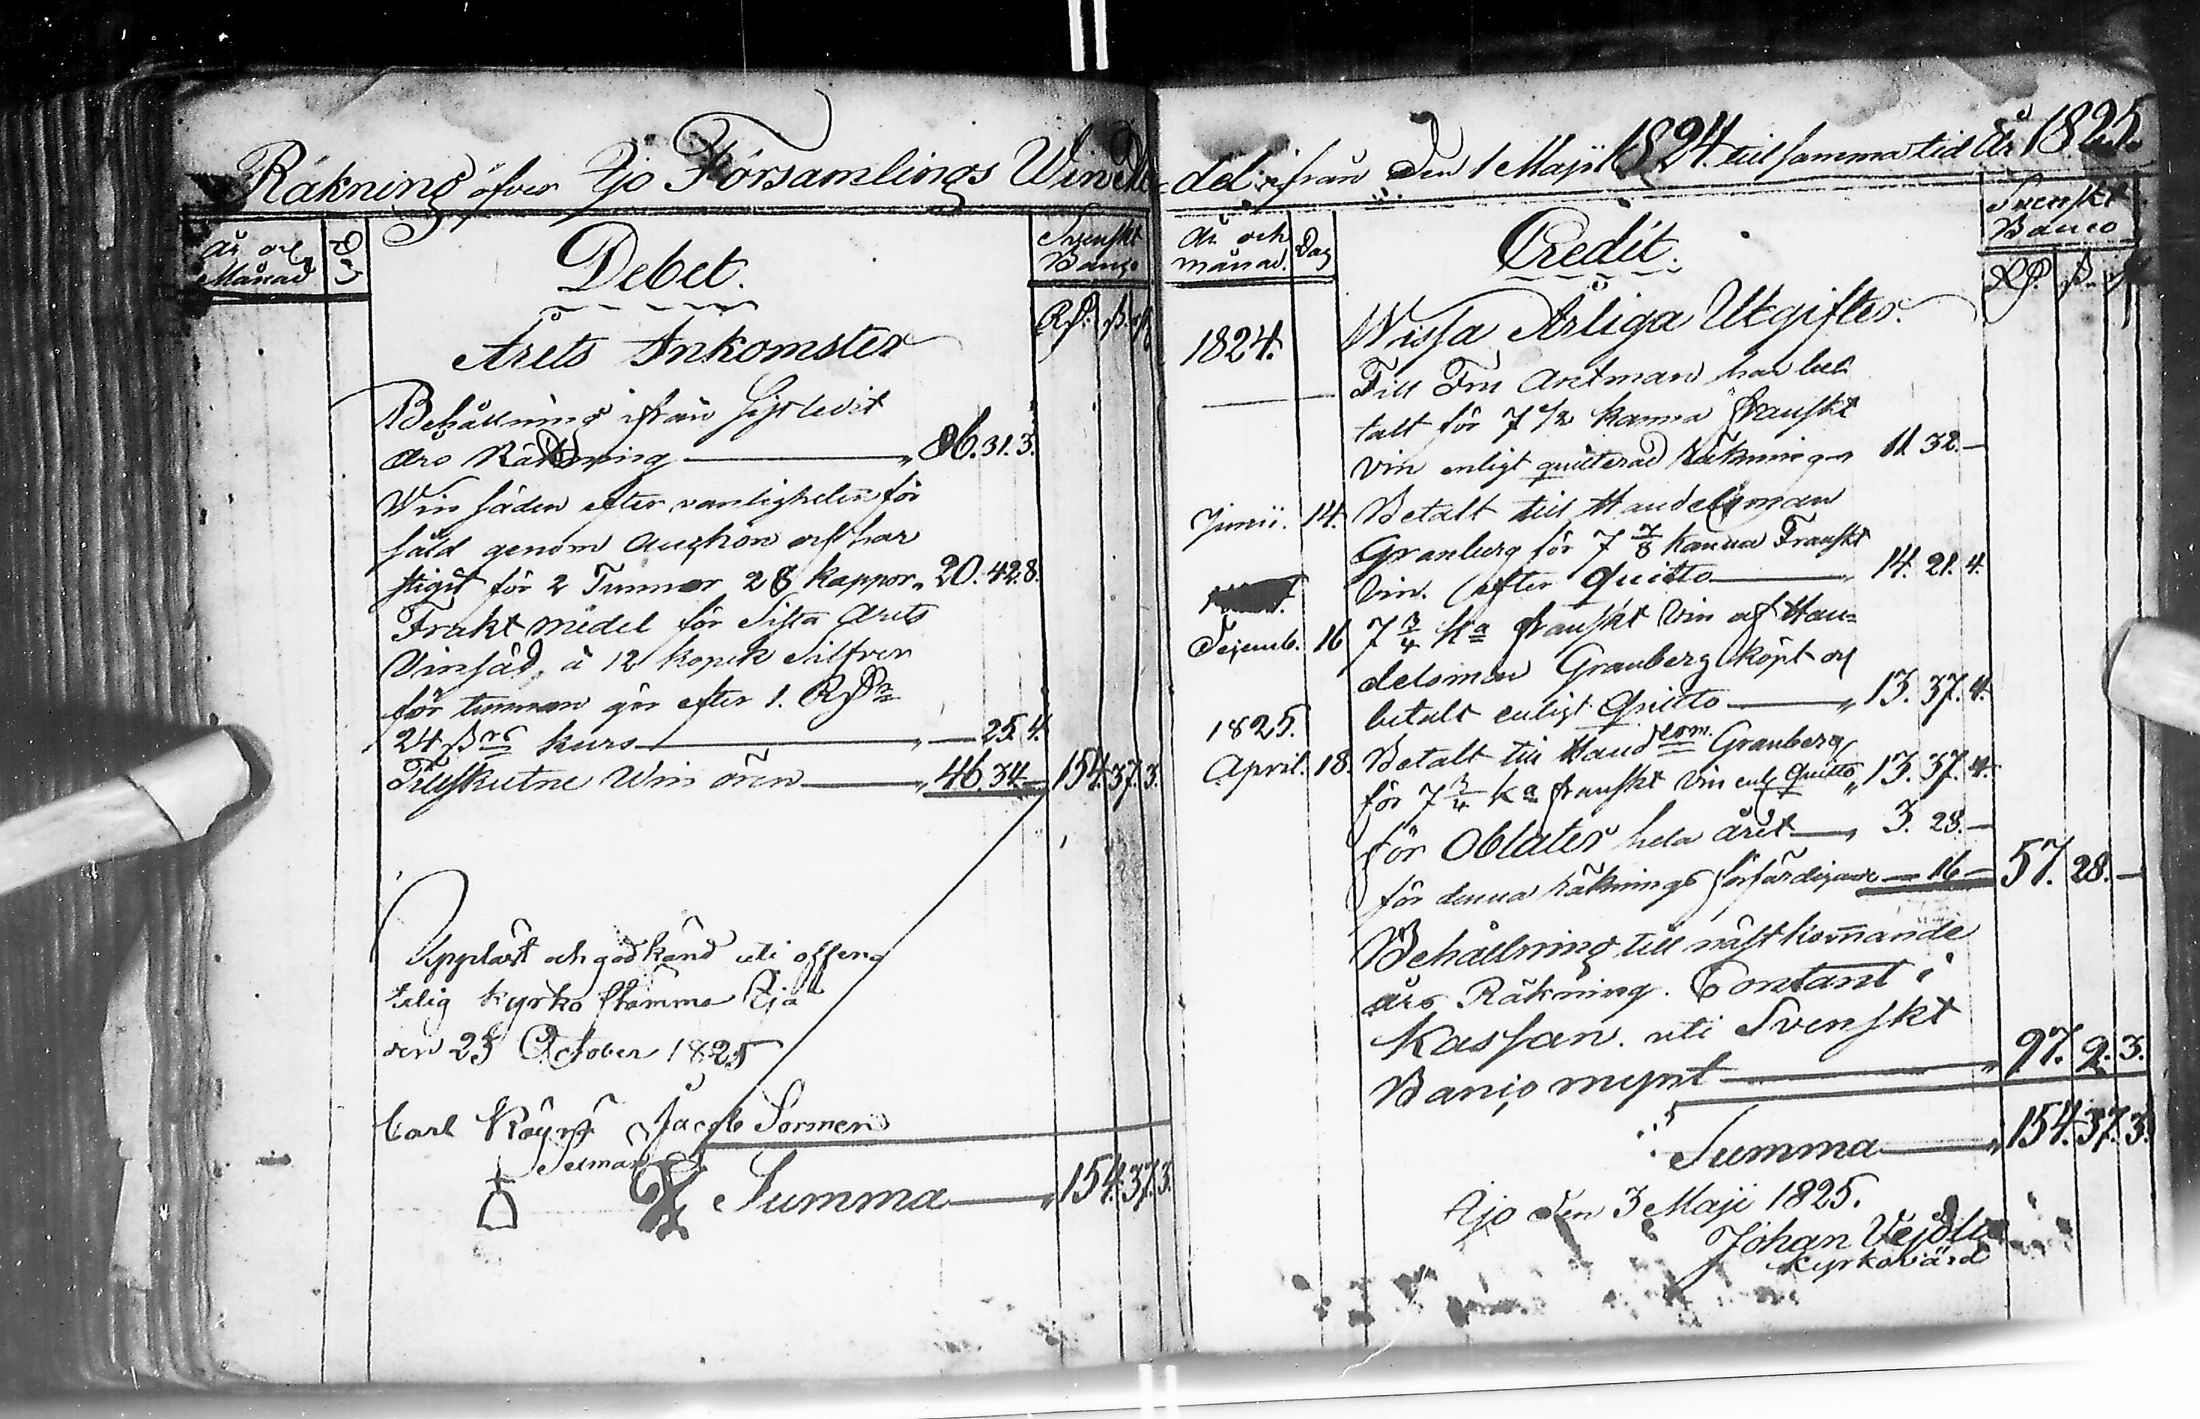 Räkning öfver Ijo Församlings Win Me-
År och Månad
Dag
Debet.
Svenskt Banco
Rd. ß. rst.
Årets Inkomster
Behållning ifrån sistledit
års Räkning 86. 31. 3.
Win säden efter vanligheten för
såld genom Auction och har
stigit för 2 Tunnor 28 kappor 20. 42. 8.
Frakt medel för Sista årets
Vinsäd, à 12 kopek Silfver
för tunnan gör efter 1. Rd
24 ß kurs — 25. 4.
Tillskutne Win ören 46. 34. — 154. 37. 3.
Uppläst och godkänd uti offen-
telig kyrko stämma Ijo
den 25 October 1825
Carl Jacob Sormen
Summa 154. 37. 3.
del ifrån den 1 Maji 1824 till samma tid År 1825.
År och månad.
Dag
Credit.
Svenskt Banco
Rd. ß. rst.
1824.
Wissa Årliga Utgifter.
Till Fru Antman har bet-
talt för 7 1/2 kanna franskt
vin enligt quitterad räkning 11. 32. —
Junii. 14. Betalt till Handelsman
Granberg för 7 7/8 kanna Franskt
Vin. efter Quitto 14. 21. 4.
16 7 3/4 ka franskt Vin af Han-
delsman Granberg köpt och
betalt enligt Quitto 13. 37. 4.
1825.
April. 18. Betalt till Handelsm. Granberg
för 7 3/4 ka franskt vin enl. Quitto 13. 37. 4.
för Oblater hela året 3. 28. —
för denna räknings förfärdigande — 16 — 57. 28. —
Behållning till nästkommande
års Räkning. Contant i
Kassan. uti Svenskt
Banco mynt 97. 9. 3.
Summa 154. 37. 3.
Ijo den 3 Maji 1825.
Johan
Kyrkovärd